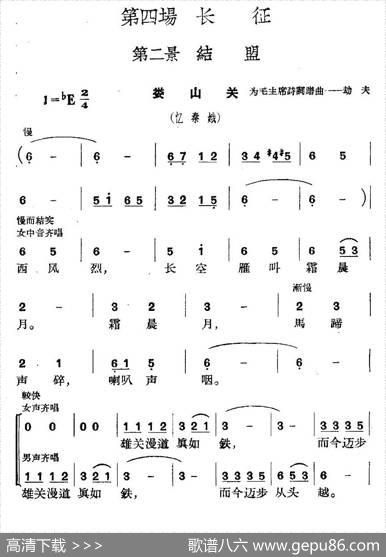 第四場 长 征
第二景 結 盟
1=♭E 2/4 娄 山 关 为毛主席詩詞譜曲——劫 夫
(忆 秦 娥)
慢
(6 - 6 - 6 7 1 2 3 4 #4 #4 5
6 - 5 1 6 5 3 2 1 5 6 - 6 -)
慢而結实
女中音齐唱
6 5 6 - 5 1 6 5 6 5 3
西 风 烈, 长 空 雁 叫 霜 晨
漸慢
2 - 3 2 3 - 2 3
月。 霜 晨 月, 馬 蹄
2 1 6 1 5 6 - 6 -
声 碎, 喇叭 声 咽。
較快
女声齐唱
0 0 1 1 1 2 3 2 1 3 - 3 3 3 5
雄关漫道 真如 鉄, 而今迈步
男声齐唱
1 1 1 2 3 2 1 3 - 3 3 3 5 3 2 1 6
雄关漫道 真如 鉄, 而今迈步 从头 越。
高清下载 >>> 歌谱八六 www.gepu86.com